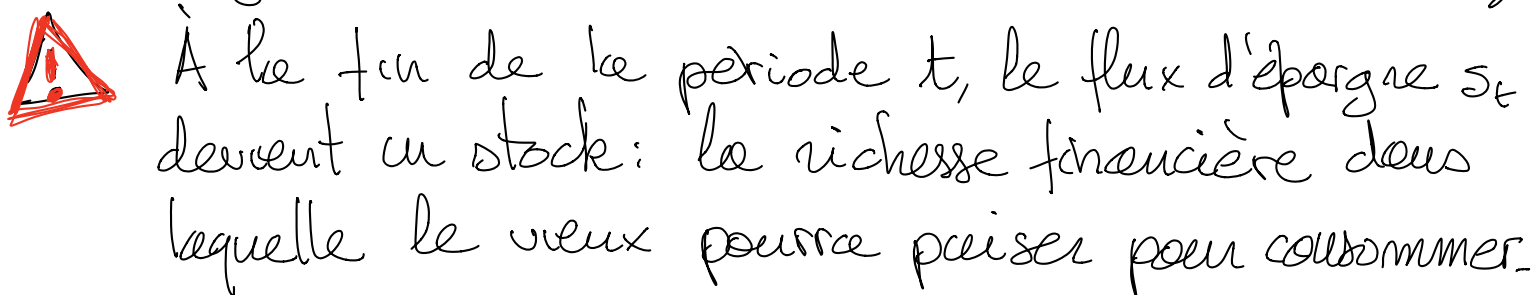 À la fin de la période t, le flux d'épargne s_t
devient un stock: la richesse financière dans
laquelle le vieux pourra puiser pour consommer.